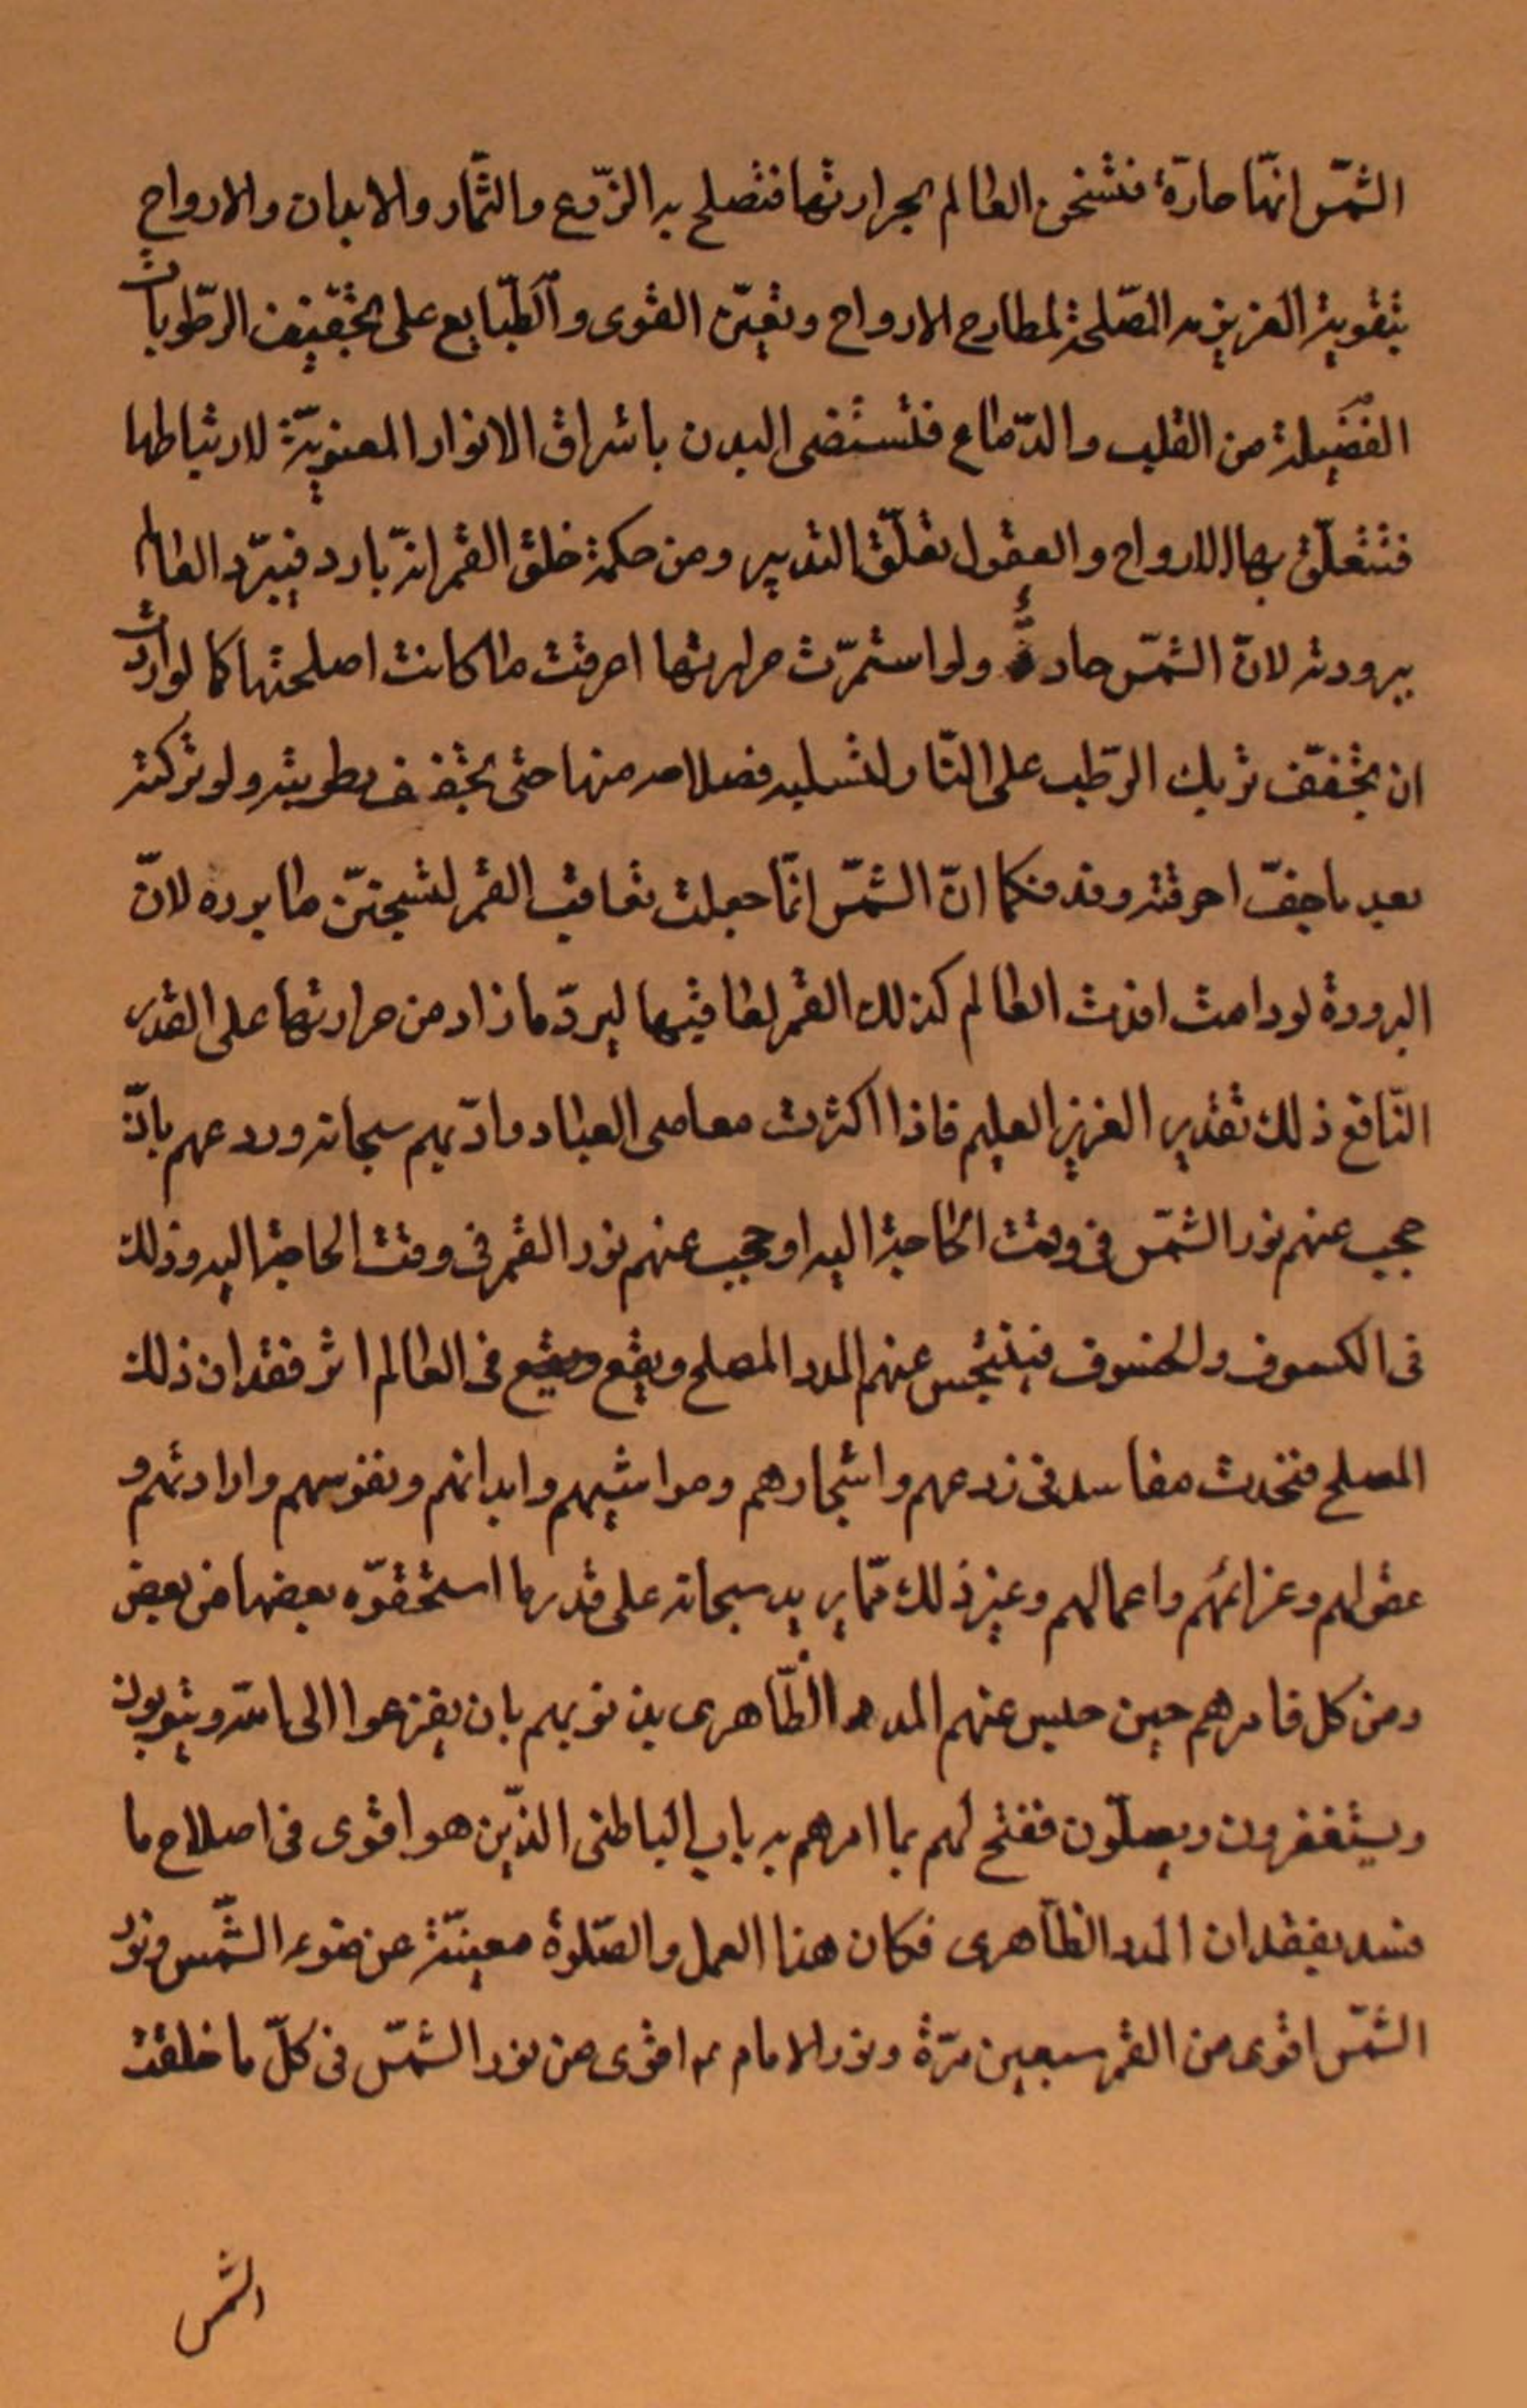 الشمّس انهّا حارّة فتسخن العالم بحرارتها فتصلح به الزّرع والثّمار والابدان والارواح
بتقوية الغريزيه المصّلحة لمطارح الارواح وتعيّن القوى والطّبايع على تجفّيف الرطّوبات
الفضيلة من القلب والدّماغ فتستضى البدن باشراق الانوار المعنويّة لارتباطها
فتتعلّق بها الارواح والعقول تعلّق التدبير ومن حكمة خلق القمر انّه بارد فيبّرد العالم
ببرودته لانّ الشمّس حارة ولو استمرّت حرارتها احرقت ما كانت اصلحتها كما لو اردت
ان تجّفف تربك الرطّب على النّار لتسلبه فضلا مه منها حتى تجفف رطوبته ولو تركته
بعد ما جفّ احرقته وقد فكما انّ الشمّس انمّا جعلت تعاقب القمر لتسّخن ما برده لانّ
البرودة لو دامت افذت العالم كذلك القمر لعاقبها ليبردّ ما زاد من حرارتها على القدر
النّافع ذلك تقدير العزيز العليم فاذا اكثرت معاصى العباد وادّبهم سبحانه وردعهم بانّ
حجب عنهم نور الشمّس فى وقت الحاجة اليه او حجب عنهم نور القمر فى وقت الحاجة اليه وذلك
فى الكسوف والخسوف فينحبس عنهم المدد المصلح ويقع ويقع فى العالم اثر فقدان ذلك
المصلح فتحدث مفاسد فى زرعهم واشجارهم ومواشيهم وابدانهم ونفوسهم وارادتهم و
عقولهم وعزائمهم واعمالهم وغير ذلك ممّا يريد سبحانه على قدر ما استحقوّه بعضها من بعض
ومن كل فامرهم حين حبس عنهم المدد الظّاهرى بذنوبهم بان يفزعوا الى الله ويتوبون
ويستغفرون ويصلّون ففتح لهم بما امرهم به باب الباطنى الذّين هو اقوى فى اصلاح ما
فسد بفقدان المدد الظاهرى فكان هذا العمل والصّلوة معينّة عن ضوء الشّمس ونور
الشمّس اقوى من القمر سبعين مرّة ونور الامام ع اقوى من نور الشمّس فى كلّ ما خلقت
الشمس